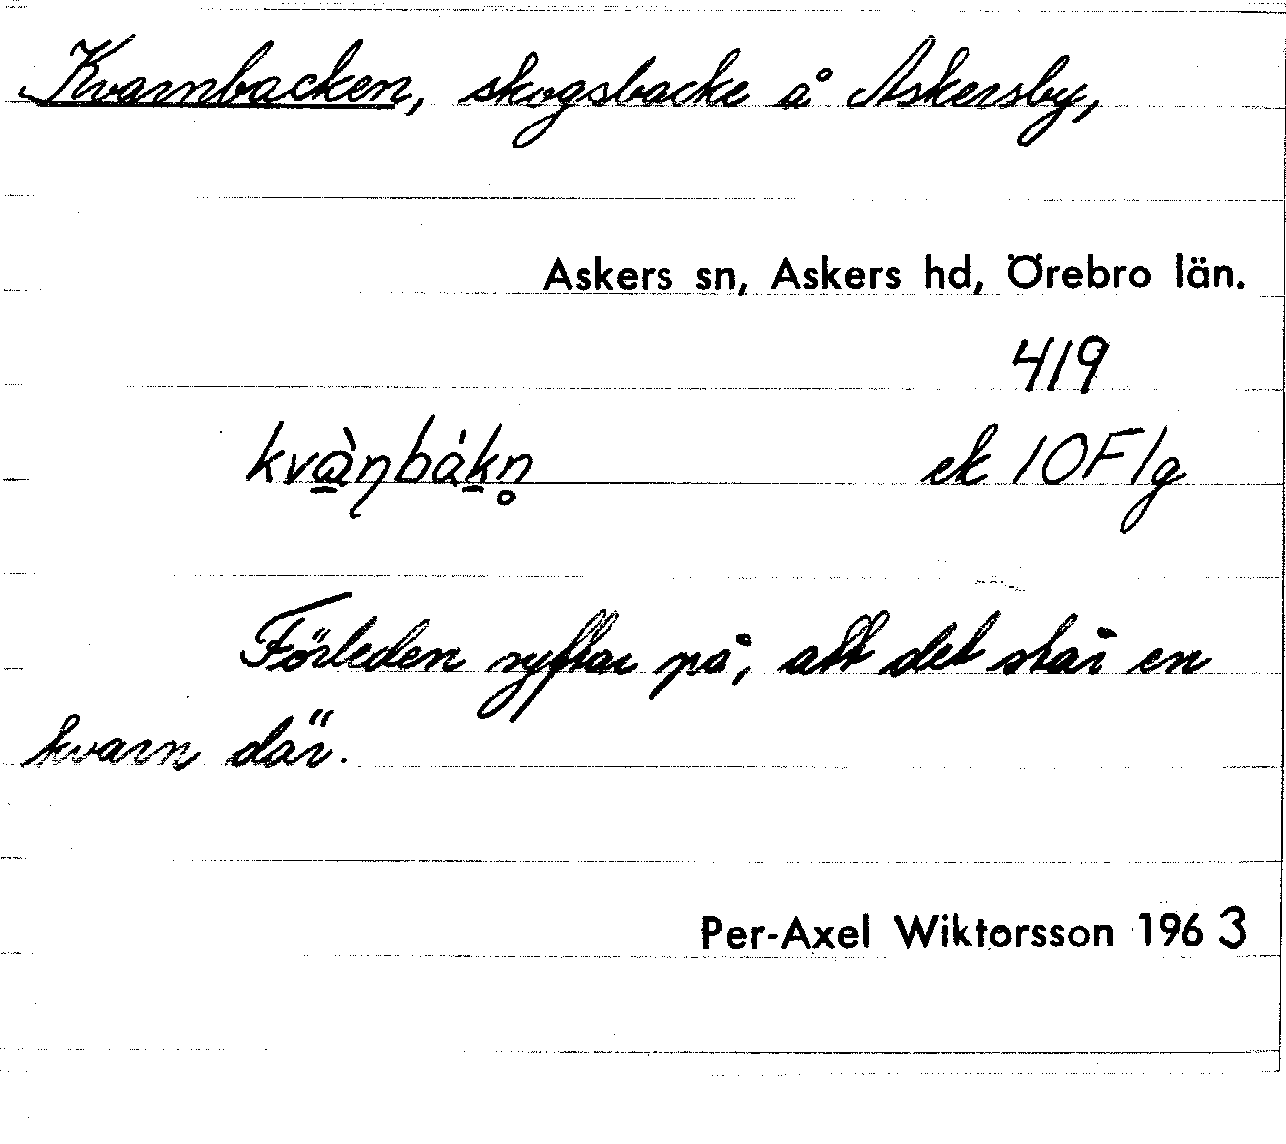 Kvarnbacken, skogsbacke å Askersby,
Askers sn, Askers hd, Örebro län.
419
kvàɳbákn̥ ek 10F1g
Förleden syftar på, att det står en
kvarn där.
Per-Axel Wiktorsson 1963